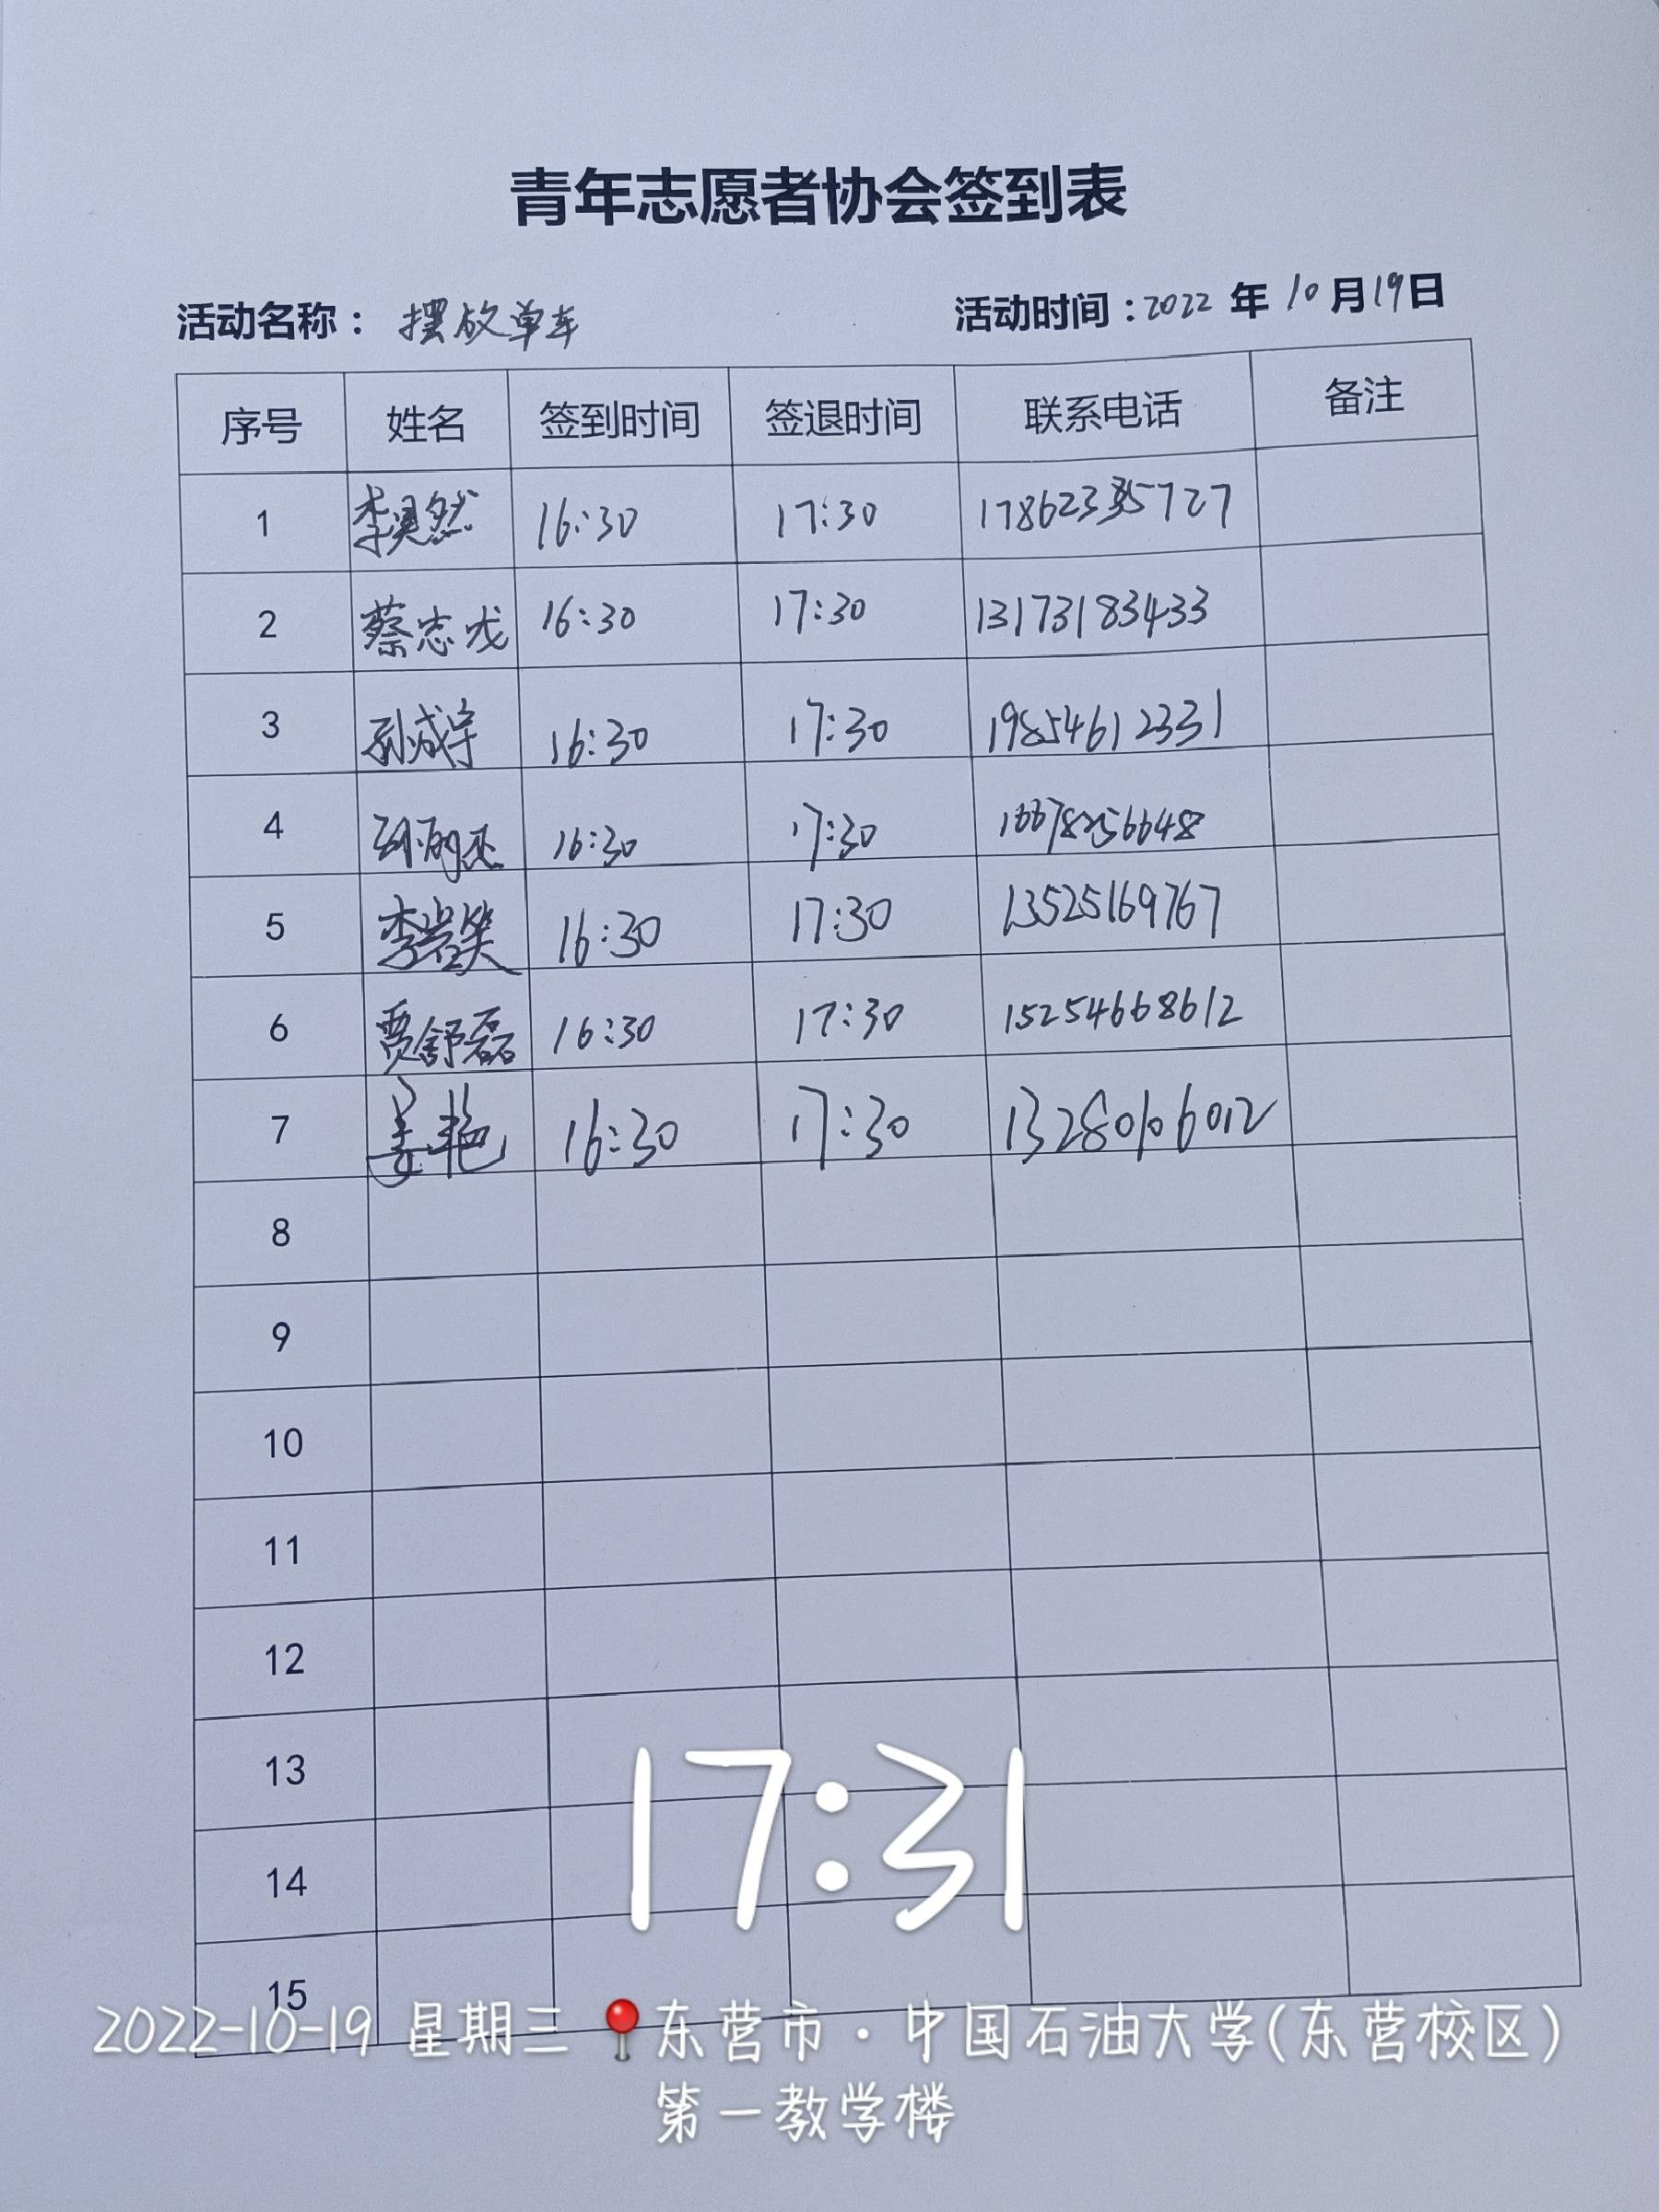 青年志愿者协会签到表
活动名称： 摆放单车 活动时间：2022 年 10 月 19 日
序号 姓名 签到时间 签退时间 联系电话 备注
1 李昊然 16:30 17:30
2 蔡志成 16:30 17:30 13173183433
3 孙成宇 16:30 17:30 19854612331
4 16:30 17:30 16678256648
5 李岩笑 16:30 17:30 13525169767
6 贾舒磊 16:30 17:30 15254668612
7 姜艳 16:30 17:30 13280106012
8
9
10
11
12
13
14
15
17:31
2022-10-19 星期三 东营市·中国石油大学(东营校区)
第一教学楼